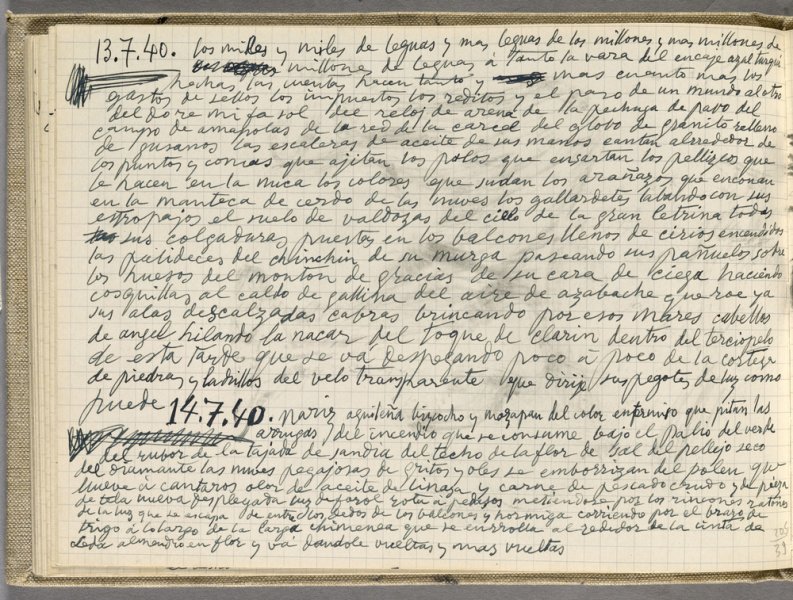 13.7.40. los miles y miles de leguas y mas leguas de los millones y mas millones de
millones de leguas á tanto la vara del encaje azul turquí
hechas las cuentas hacen tanto y mas cuanto mas los
gastos de sellos los impuestos los reditos y el paso de un mundo al otro
del do re mi fa sol del reloj de arena de la pechuga de pavo del
campo de amapolas de la red de la carcel del globo de granito relleno
de gusanos las escaleras de aceite de sus manos cantan alrrededor de
los puntos y comas que ajitan los polos que ensartan los pellizcos que
le hacen en la nuca los colores que sudan los arañazos que enconan
en la manteca de cerdo de las nuves los gallardetes labando con sus
estropajos el suelo de valdozas del cielo de la gran letrina todas
sus colgaduras puestas en los balcones llenos de cirios encendidos
las palideces del chinchin de su murga paseando sus pañuelos sobre
los huesos del monton de gracias de su cara de ciega haciendo
cosquillas al caldo de gallina del aire de azabache que roe ya
sus alas descalzadas cabras brincando por esos mares cabellos
de angel hilando la nacar del toque de clarin dentro del terciopelo
de esta tarde que se vá despegando poco á poco de la corteza
de piedras y ladrillos del velo transparente que dirije sus pegotes de luz como
puede 14.7.40. nariz aguileña bizcocho y mazapan del color enfermizo que pintan las
arrugas del incendio que se consume bajo el palio del verde
del rubor de la tajada de sandia del techo de la flor de sal del pellejo seco
del diamante las nuves pegajosas de gritos y oles se emborrizan del polen que
llueve á cantaros olor de aceite de linaza y carne de pescado crudo y de pieza
de tela nueva desplegada luz de farol rota á pedazos metiendose por los rincones ratones
de la luz que se escapa de entre los dedos de los balcones y hormiga corriendo por el brazo de
trigo á lo largo de la larga chimenea que se enrrolla al rededor de la cinta de
seda almendro en flor y vá dandole vueltas y mas vueltas